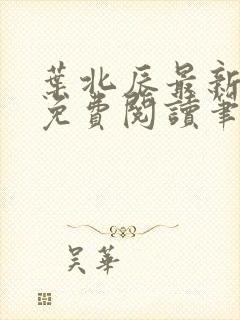 葉北辰最新
免費閱讀筆
吴華